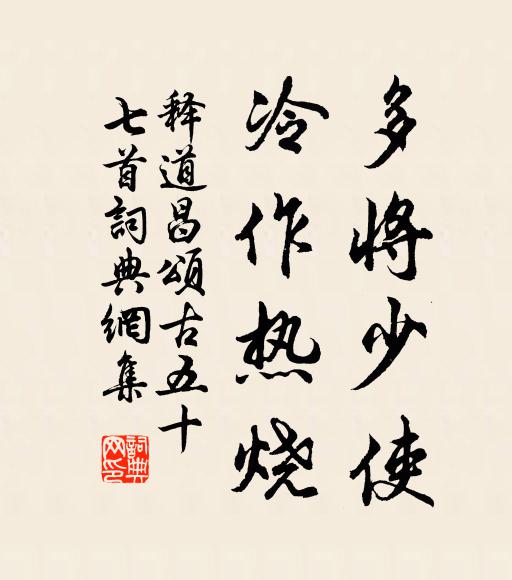 多将少使
冷作热烧
释道昌頌古五十
七首詞典網集
詞典网印